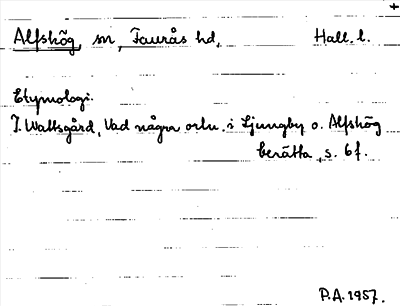 +
Alfshög, sn, Faurås hd, Hall. l.
Etymologi.
J. Wallsgård, Vad några ortn. i Ljungby o. Alfshög
berätta, s. 6 f.
P.A. 1957.